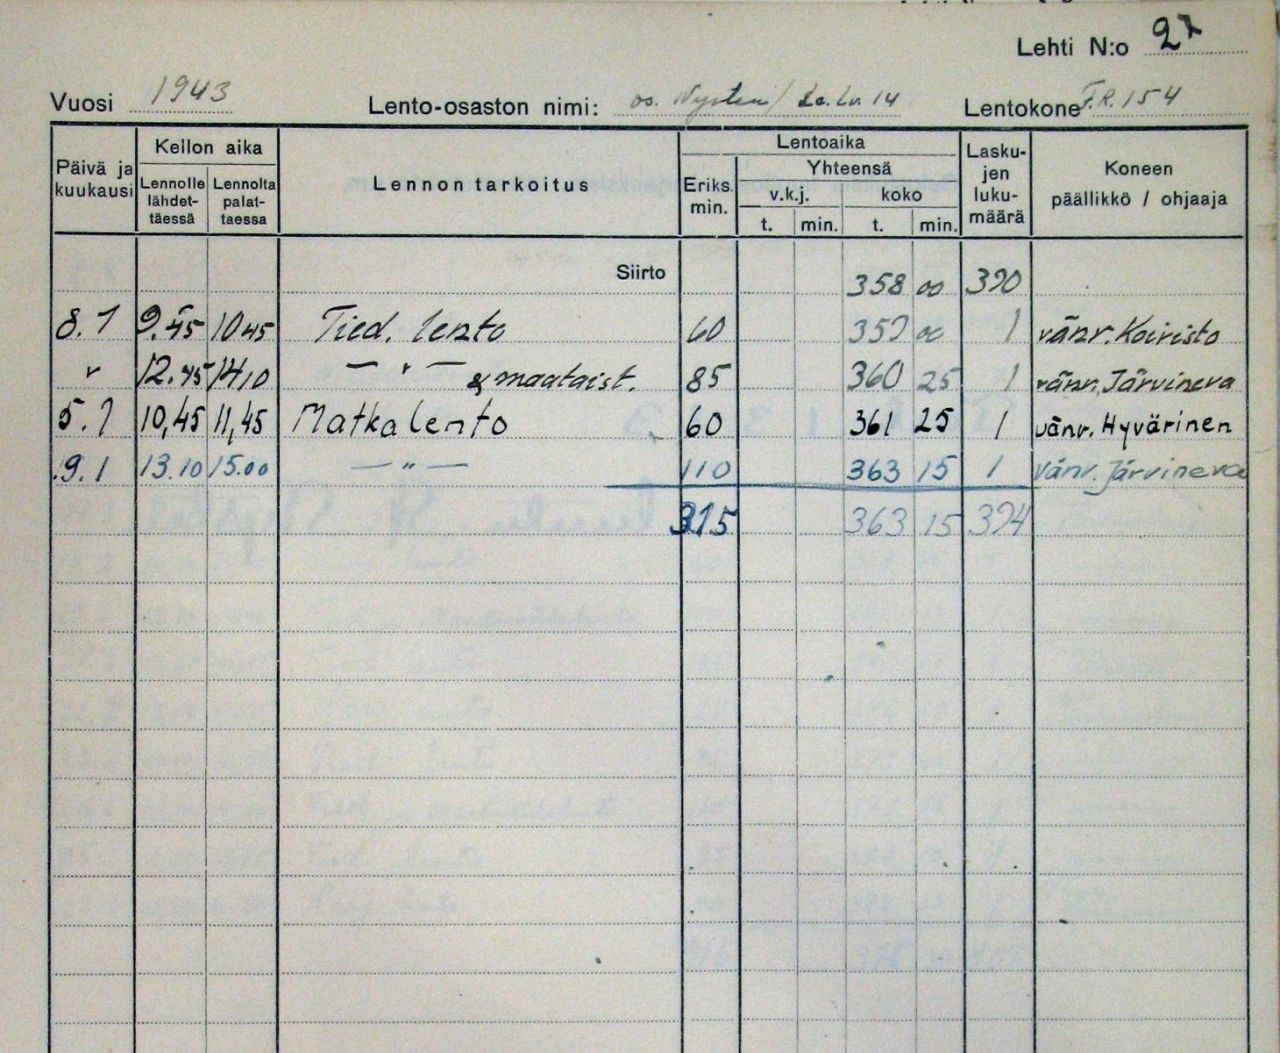 Lehti N:o 27
Vuosi 1943 Lento-osaston nimi: os. Nysten / Le.Lv. 14 Lentokone F.R. 154
Päivä ja kuukausi
Kellon aika
Lennolle lähdet-täessä
Lennolta palat-taessa
Lennon tarkoitus
Lentoaika
Eriks. min.
Yhteensä
v.k.j.
koko
t. min. t. min.
Lasku-jen luku-määrä
Koneen
päällikkö / ohjaaja
Siirto 358 00 390
8.1 9.45 10 45 Tied. lento 60 359 00 1 vänr. Koivisto
" 12.45 14 10 — " — & maataist. 85 360 25 1 vänr. Järvineva
5.1 10,45 11,45 Matkalento 60 361 25 1 vänr. Hyvärinen
9.1 13.10 15.00 — " — 110 363 15 1 vänr. Järvineva
315 363 15 394